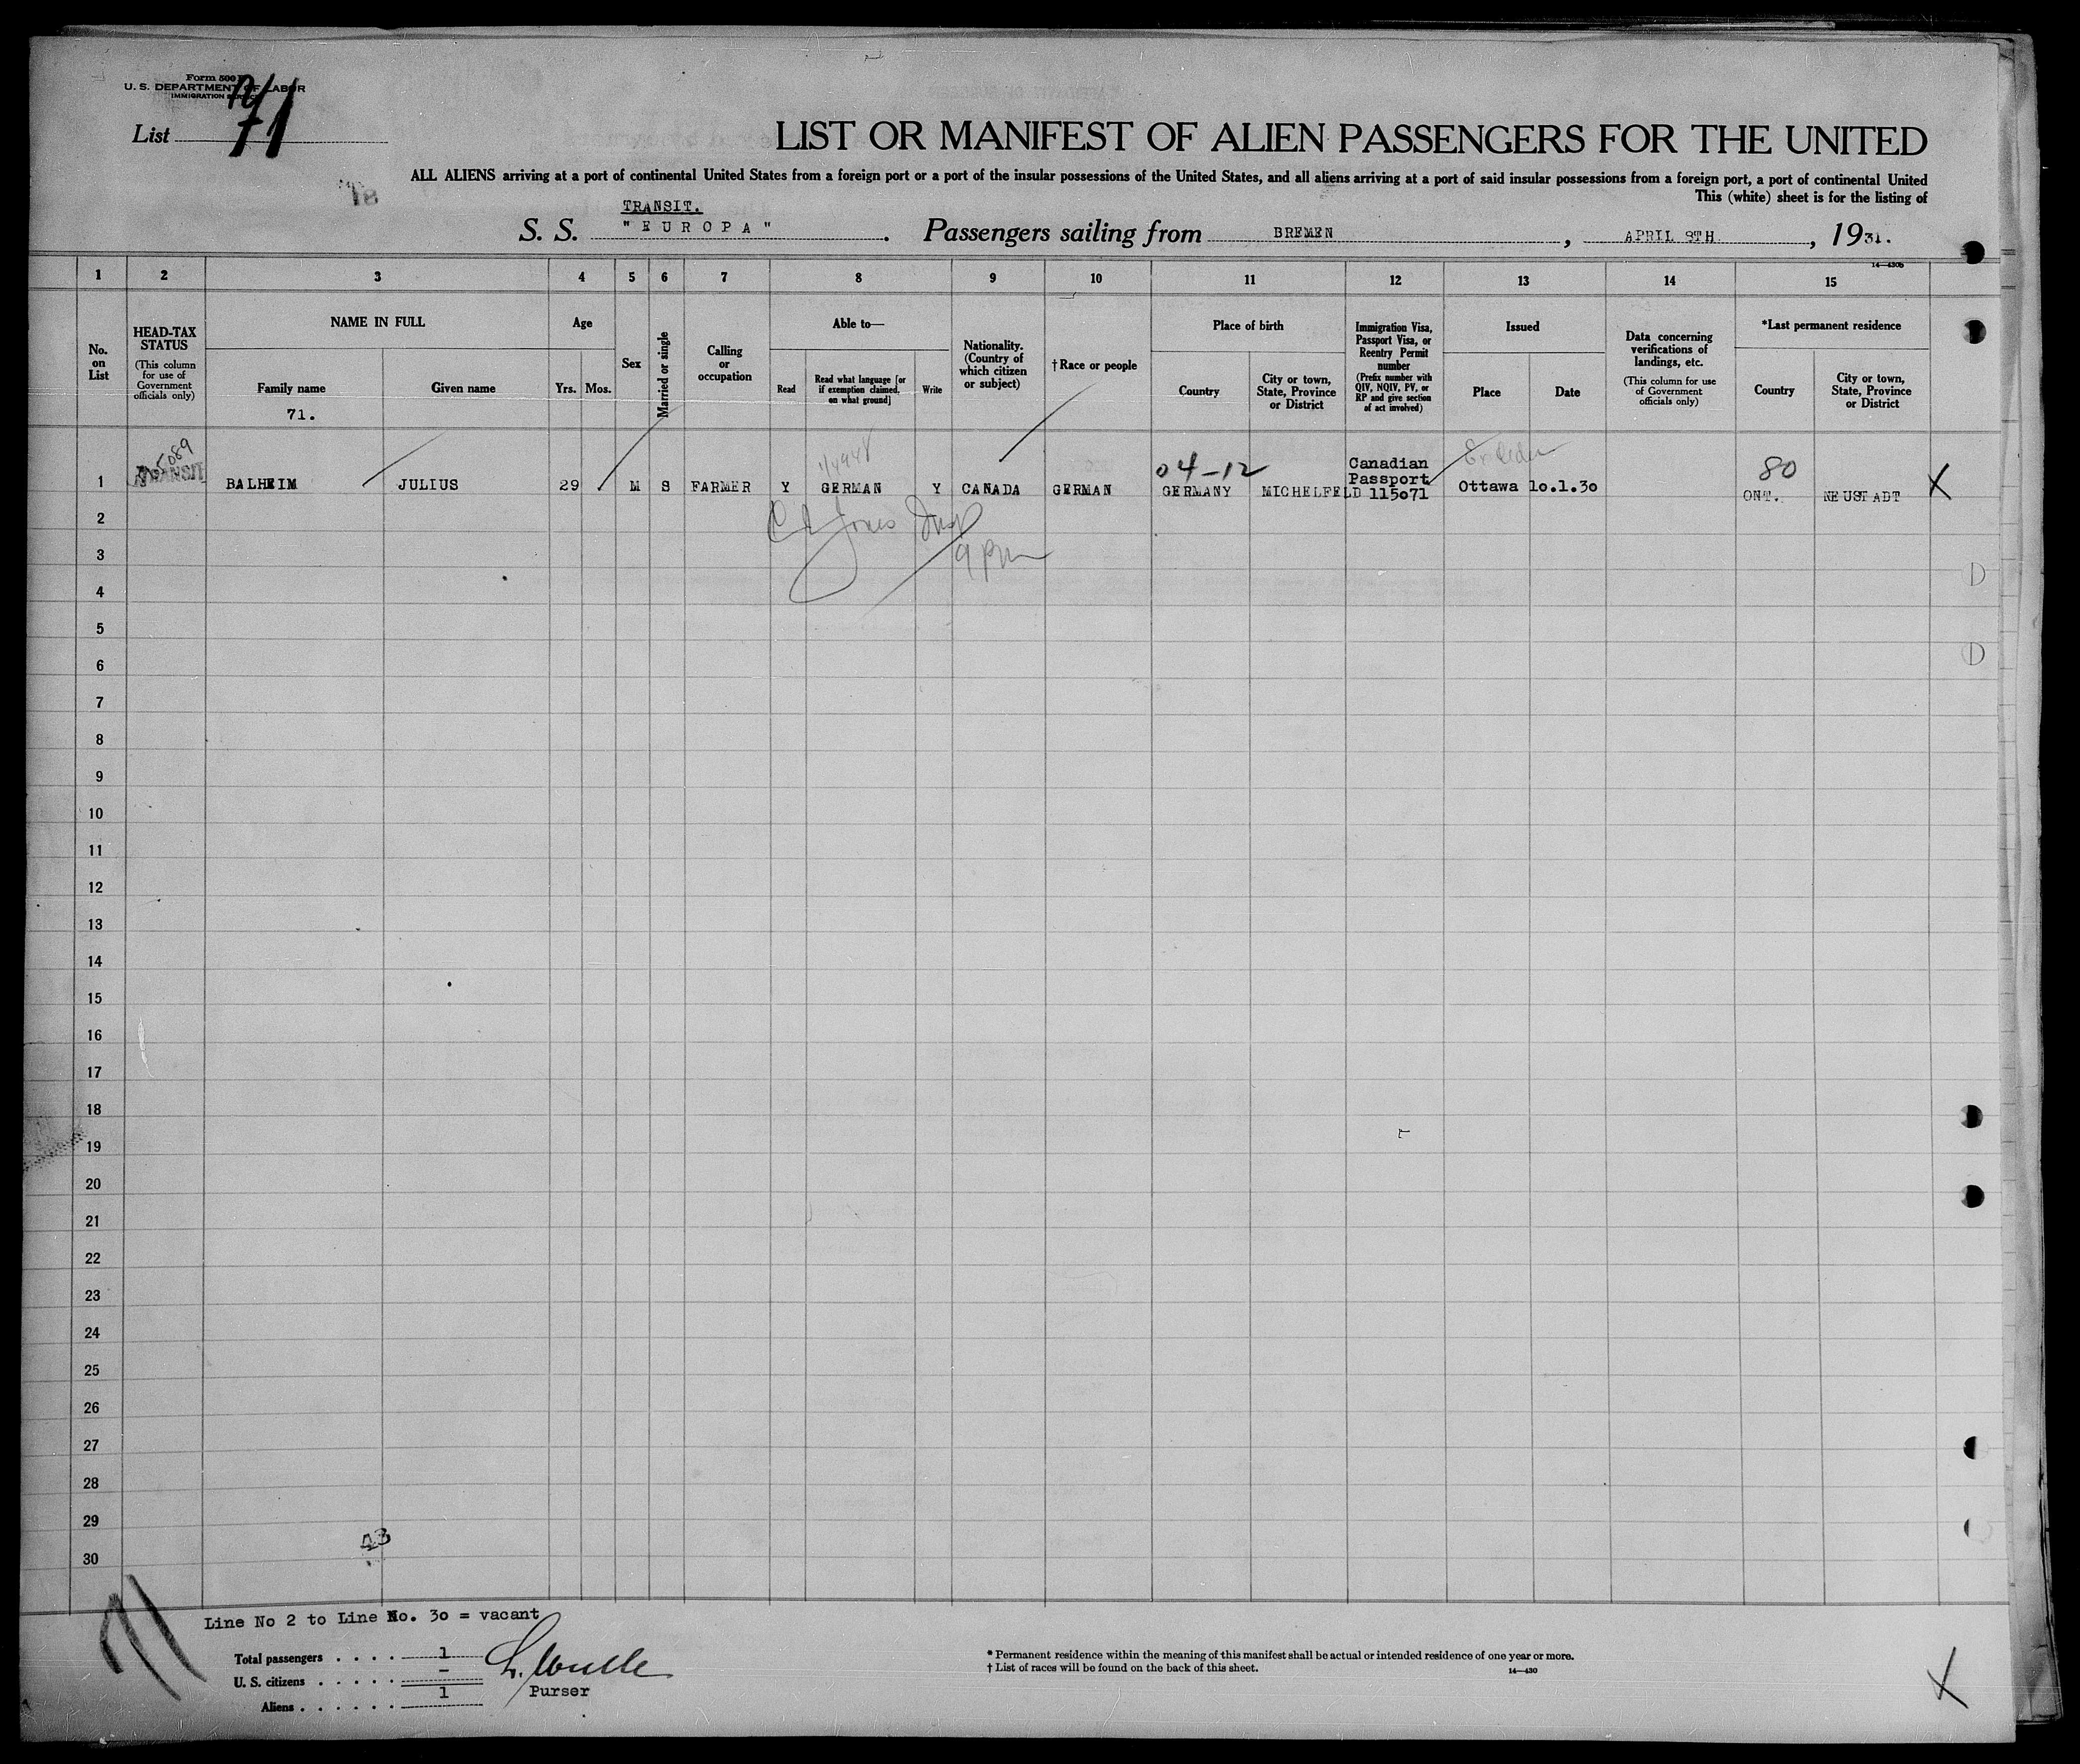 Form 500
U. S. DEPARTMENT OF LABOR
IMMIGRATION
List 71
LIST OR MANIFEST OF ALIEN PASSENGERS FOR THE UNITED
ALL ALIENS arriving at a port of continental United States from a foreign port or a port of the insular possessions of the United States, and all aliens arriving at a port of said insular possessions from a foreign port, a port of continental United
This (white) sheet is for the listing of
TRANSIT.
S. S. "EUROPA". Passengers sailing from BREMEN, APRIL 8TH, 1931.
14—430B
1 2 3 4 5 6 7 8 9 10 11 12 13 14 15
No. on List
HEAD-TAX STATUS
(This column for use of Government officials only)
NAME IN FULL
Family name
Given name
71.
Age
Yrs. Mos.
Sex
Married or single
Calling or occupation
Able to—
Read
Read what language [or if exemption claimed, on what ground]
Write
Nationality. (Country of which citizen or subject)
†Race or people
Place of birth
Country
City or town, State, Province or District
Immigration Visa, Passport Visa, or Reentry Permit number
(Prefix number with QIV, NQIV, PV, or RP and give section of act involved)
Issued
Place
Date
Data concerning verifications of landings, etc.
(This column for use of Government officials only)
*Last permanent residence
Country
City or town, State, Province or District
04-12 Canadian 80
1 TRANSIT BALHEIM JULIUS 29 M S FARMER Y GERMAN Y CANADA GERMAN GERMANY MICHELFELD Passport 115071 Ottawa 10.1.30 ONT. NEUSTADT X
2
3
4
5
6
7
8
9
10
11
12
13
14
15
16
17
18
19
20
21
22
23
24
25
26
27
28
29
30
43
71
Line No 2 to Line No. 30 = vacant
Total passengers . . . . 1
U. S. citizens . . . . . –
Aliens . . . . . . 1
Purser
* Permanent residence within the meaning of this manifest shall be actual or intended residence of one year or more.
† List of races will be found on the back of this sheet.
14—430
X